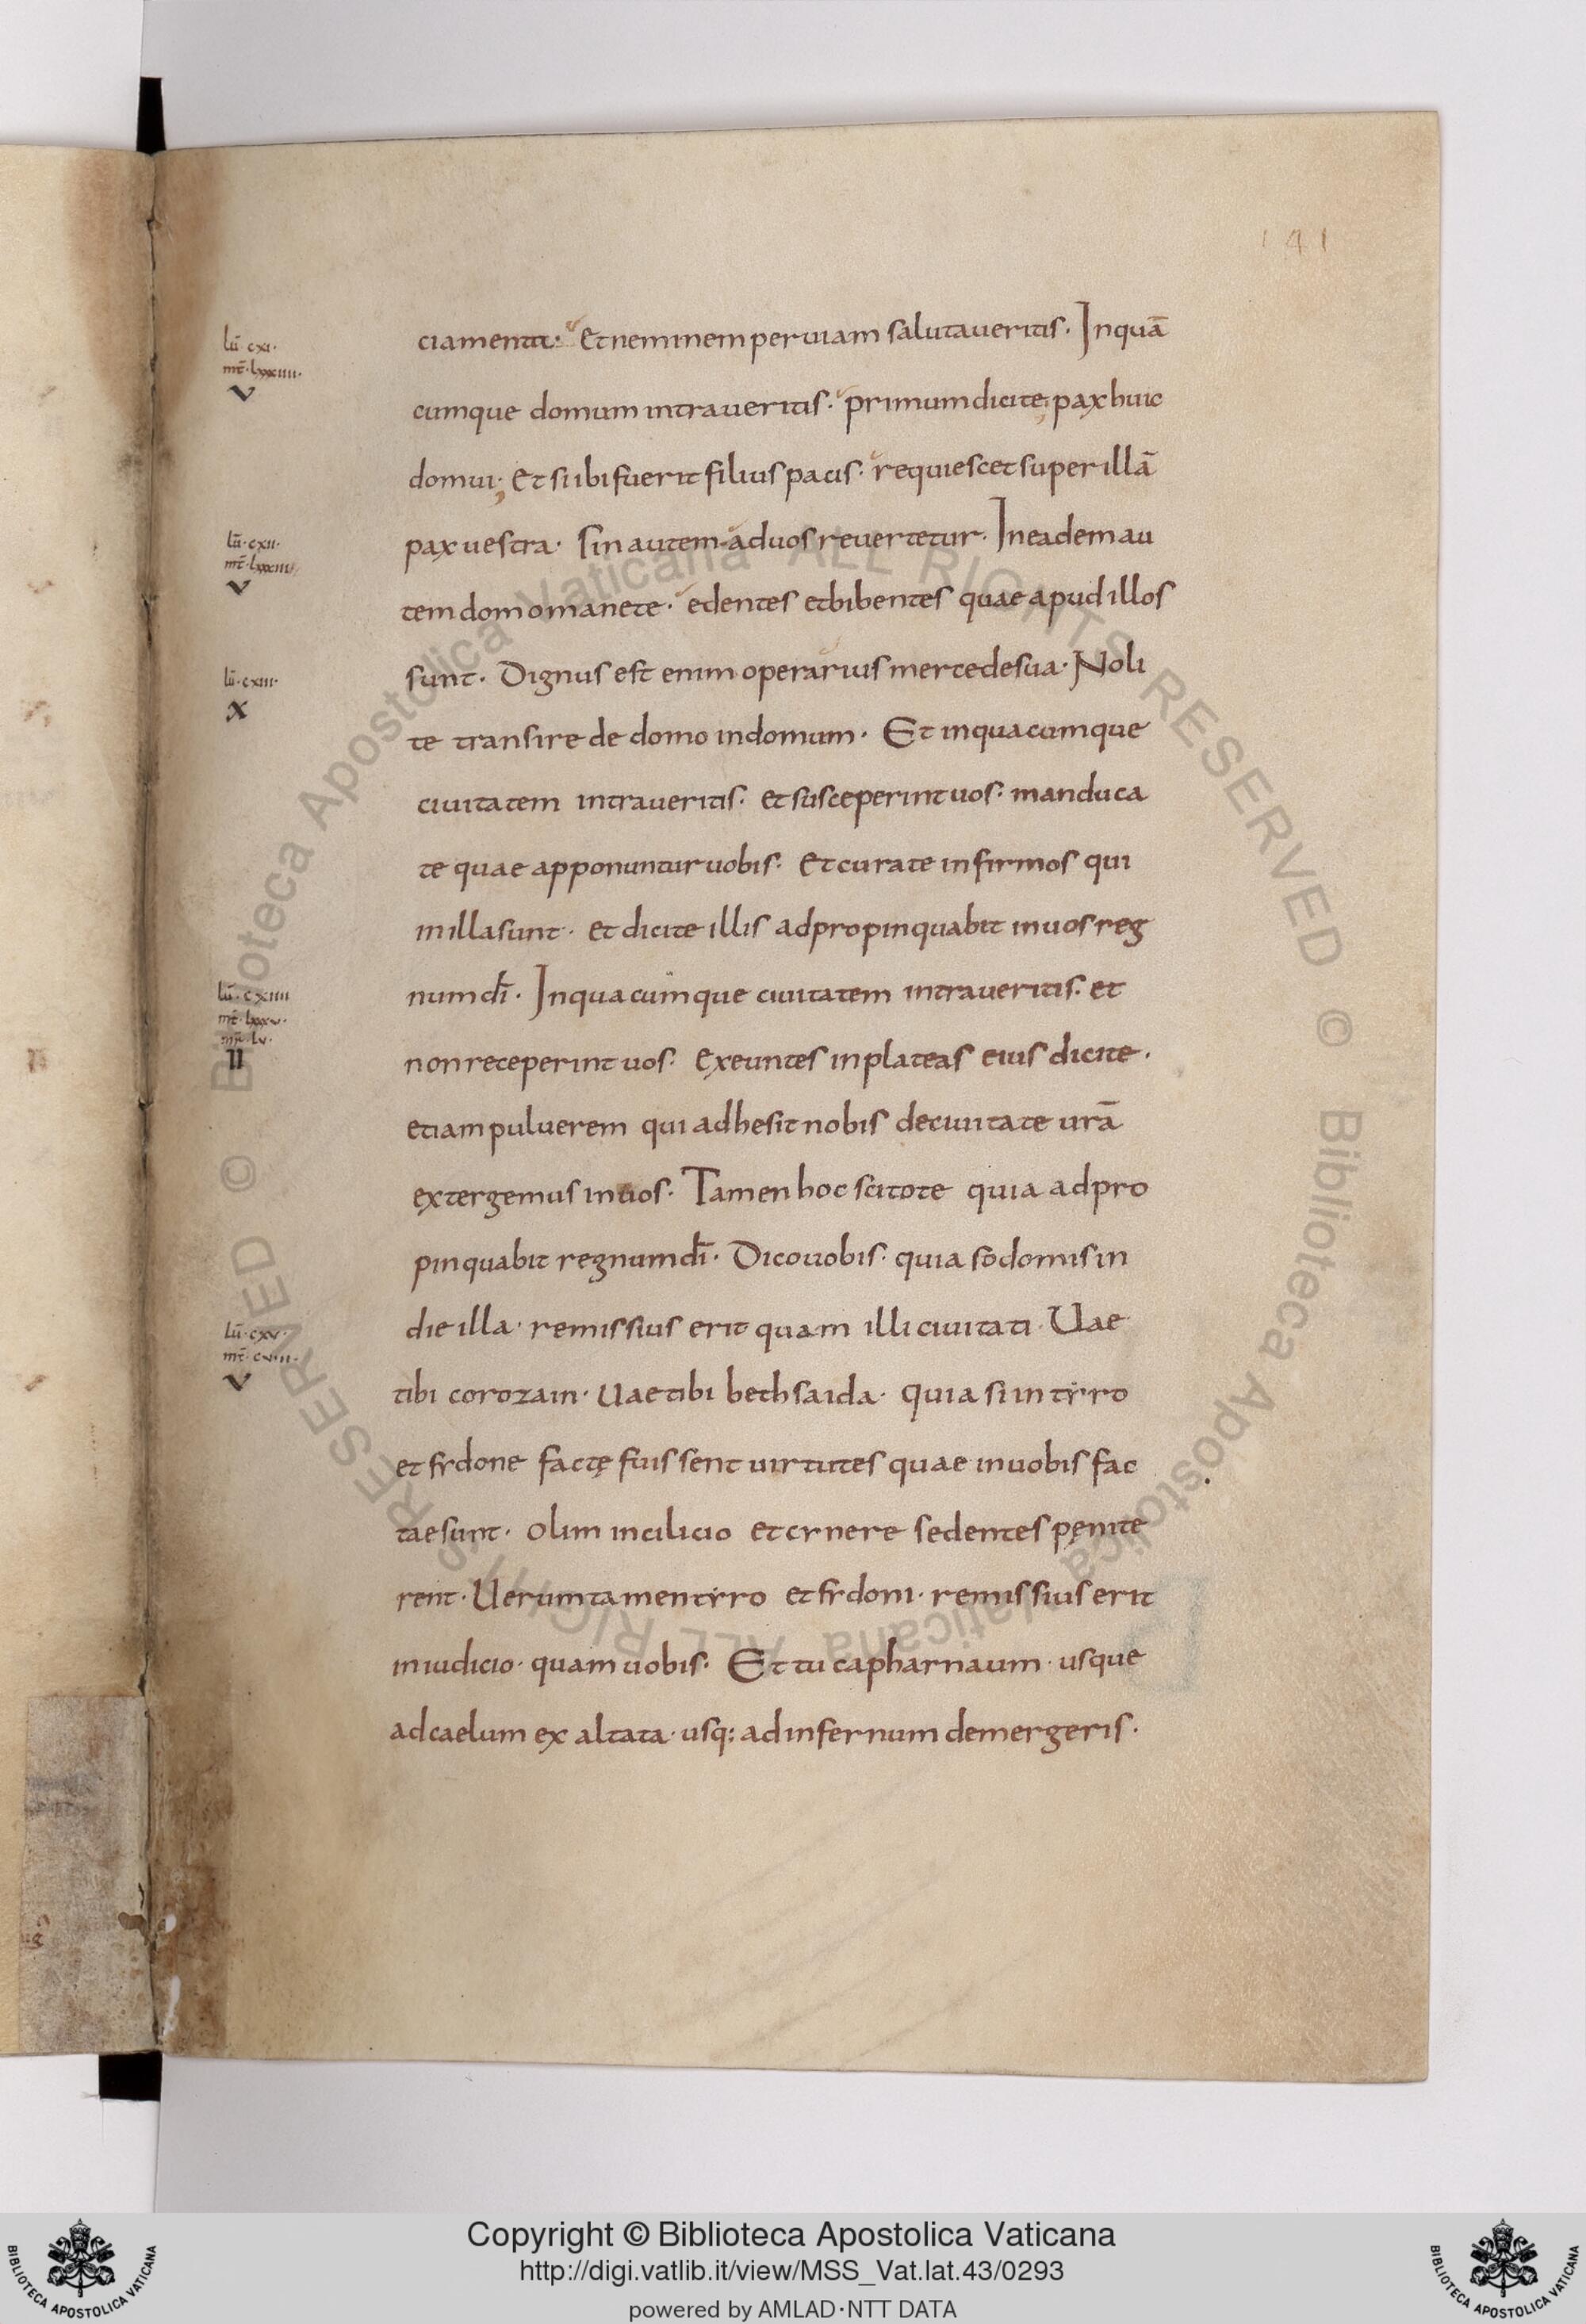 141
ciamenta· Et neminem per uiam salutaueritis· In quā
cumque domum intraueritis· primum dicite; pax huic
domui; Et si ibi fuerit filius pacis· requiescet super illā
pax uestra· sin autem ad uos reuertetur· In eadem au
tem domo manete· edentes et bibentes quae apud illos
sunt· Dignus est enim operarius mercede sua· Noli
te transire de domo in domum· Et in quacumque
ciuitatem intraueritis· et susceperint uos· manduca
te quae apponuntur uobis· Et curate infirmos qui
in illa sunt· et dicite illis adpropinquabit in uos reg
num dī· In quacumque ciuitatem intraueritis· et
non receperint uos· Exeuntes in plateas eius dicite·
etiam puluerem qui adhesit nobis de ciuitate urā
extergemus in uos· Tamen hoc scitote quia adpro
pinquabit regnum dī· Dico uobis· quia sodomis in
die illa· remissius erit quam illi ciuitati· Uae
tibi corozain· Uae tibi bethsaida· quia si in tyro
et sydone factę fuissent uirtutes quae in uobis fac
tae sunt· olim in cilicio et cynere sedentes pęnite
rent· Uerumtamen tyro et sydoni· remissius erit
in iudicio· quam uobis· Et tu capharnaum· usque
ad caelum exaltata· usq; ad infernum demergeris·
lū· cxi·
mt̄· lxxxiiii·
V
lū· cxii·
V
lū· cxiii·
X
lū· cxiiii
mt̄· lxxxv·
mr̄· lv·
II
lū· cxv·
mt̄· cviii·
V
© Biblioteca Apostolica Vaticana ALL RIGHTS RESERVED © Biblioteca Apostolica Vaticana ALL RIGHTS RESERVED
Copyright © Biblioteca Apostolica Vaticana
http://digi.vatlib.it/view/MSS_Vat.lat.43/0293
powered by AMLAD·NTT DATA
BIBLIOTECA APOSTOLICA VATICANA
BIBLIOTECA APOSTOLICA VATICANA